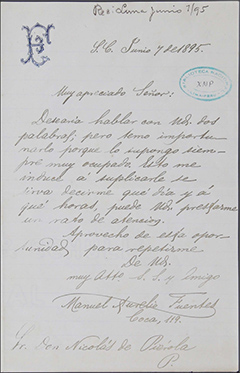 Junio 7/95
F
S. C. Junio 7 de 1895.
Muy apreciado Señor:
Desearia hablar con Ud. dos
palabras; pero temo importu-
narlo porque lo supongo siem-
pre muy ocupado. Esto me
induce á suplicarle se
sirva decirme qué día y á
qué horas, puede Ud. prestarme
un rato de atencion.
Aprovecho de esta opor-
tunidad para repetirme
De Ud.
muy Atto. S. S. y Amigo
Manuel Aurelio Fuentes
Coca, 119.
Sr. Don Nicolás de Piérola
P.